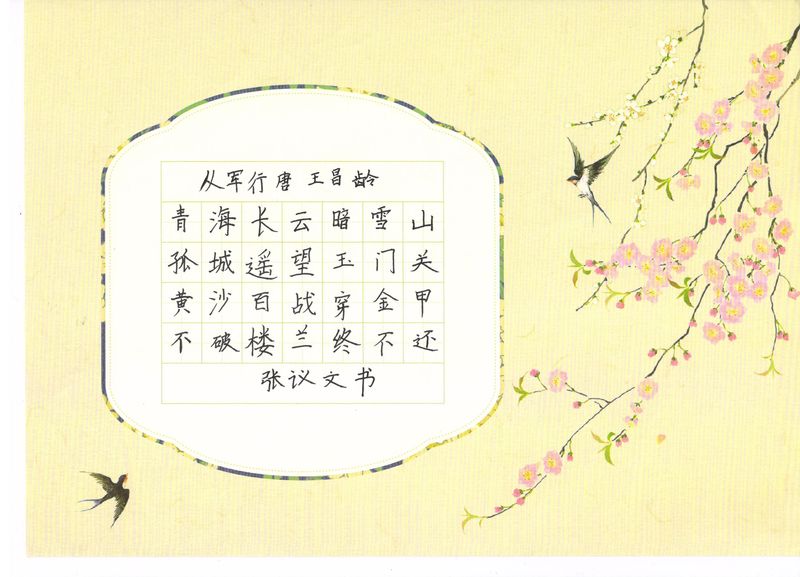 从军行 唐 王昌龄
青海长云暗雪山
孤城遥望玉门关
黄沙百战穿金甲
不破楼兰终不还
张议文书